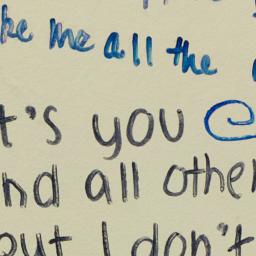 ke me all the
t's you
nd all other
but I don't